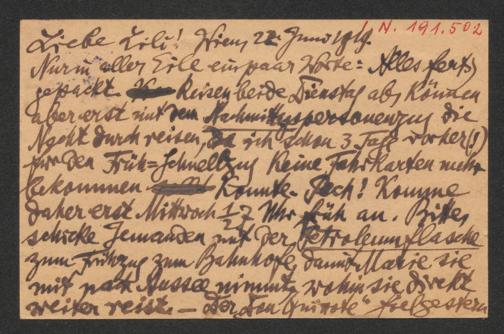 I. N. 191.502
Liebe Lili! Wien, 22. Juni 1919.
Nur in aller Eile ein paar Worte: Alles fertig
gepackt. Reisen beide Dienstag ab, können
aber erst mit dem Nachmittagspersonenzug die
Nacht durch reisen, da ich schon 3 Tage vorher (!)
für den Früh-Schnellzug keine Fahrkarten mehr
bekommen konnte. Pech! Komme
daher erst Mittwoch 1/2 7 Uhr früh an. Bitte,
schicke Jemanden mit der Petroleumflasche
zum Frühzug zum Bahnhofe, damit Marie sie
mit nach Aussee nimmt, wohin sie direkt
weiter reist. — Der "Don Quixote" fiel gestern